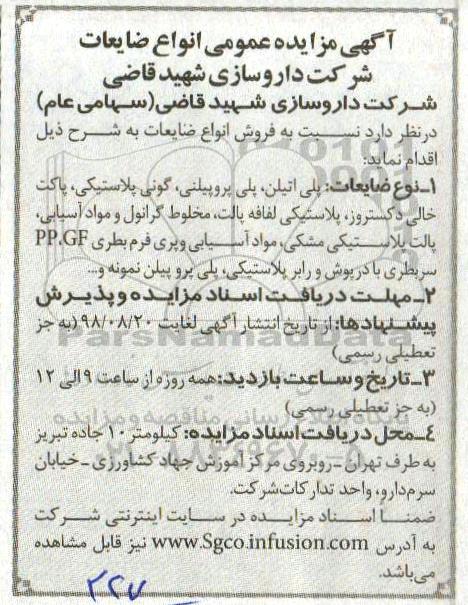 آگهی مزایده عمومی انواع ضایعات
شرکت داروسازی شهید قاضی
شرکت داروسازی شهید قاضی (سهامی عام)
درنظر دارد نسبت به فروش انواع ضایعات به شرح ذیل
اقدام نماید:
۱ـ نوع ضایعات: پلی اتیلن، پلی پروپیلنی، گونی پلاستیکی، پاکت
خالی دکستروز، پلاستیکی لفافه پالت، مخلوط گرانول و مواد آسیابی،
پالت پلاستیکی مشکی، مواد آسیابی وپری فرم بطری PP.GF
سربطری بادرپوش و رابر پلاستیکی، پلی پرو پیلن نمونه و...
۲ـ مهلت دریافت اسناد مزایده و پذیرش
پیشنهادها: از تاریخ انتشار آگهی لغایت ۹۸/۰۸/۲۰ (به جز
تعطیلی رسمی)
۳ـ تاریخ و ساعت بازدید: همه روزه از ساعت ۹ الی ۱۲
(به جز تعطیلی رسمی)
۴ـ محل دریافت اسناد مزایده: کیلومتر ۱۰ جاده تبریز
به طرف تهران ـ روبروی مرکز آموزش جهاد کشاورزی ـ خیابان
سرم دارو، واحد تدارکات شرکت.
ضمنا اسناد مزایده در سایت اینترنتی شرکت
به آدرس www.Sgco.infusion.com نیز قابل مشاهده
می‌باشد.
۲۲۷
ParsNamadData